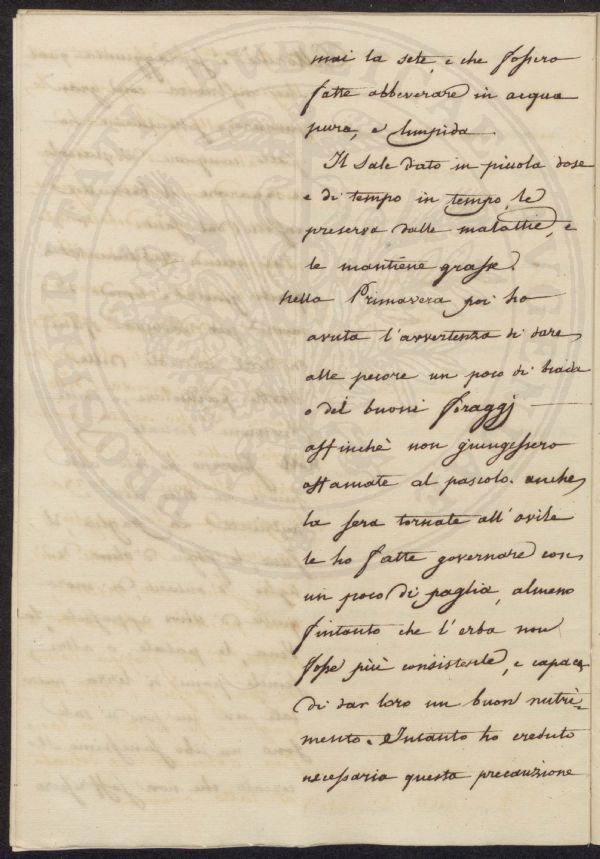 mai la sete, e che fossero
fatte abbeverare in acqua
pura, e limpida.
Il Sale dato in piccola dose
e di tempo in tempo, le
preserva dalle malattie, e
le mantiene grasse.
Nella Primavera poi ho
avuta l'avvertenza di dare
alle pecore un poco di biada
o dei buoni foraggj
affinchè non giungessero
affamate al pascolo. anche
la sera tornate all'ovile
le ho fatte governare con
un poco di paglia, almeno
fintanto che l'erba non
fosse più consistente, e capace
di dar loro un buon nutri-
mento. Intanto ho creduto
necessaria questa precauzione